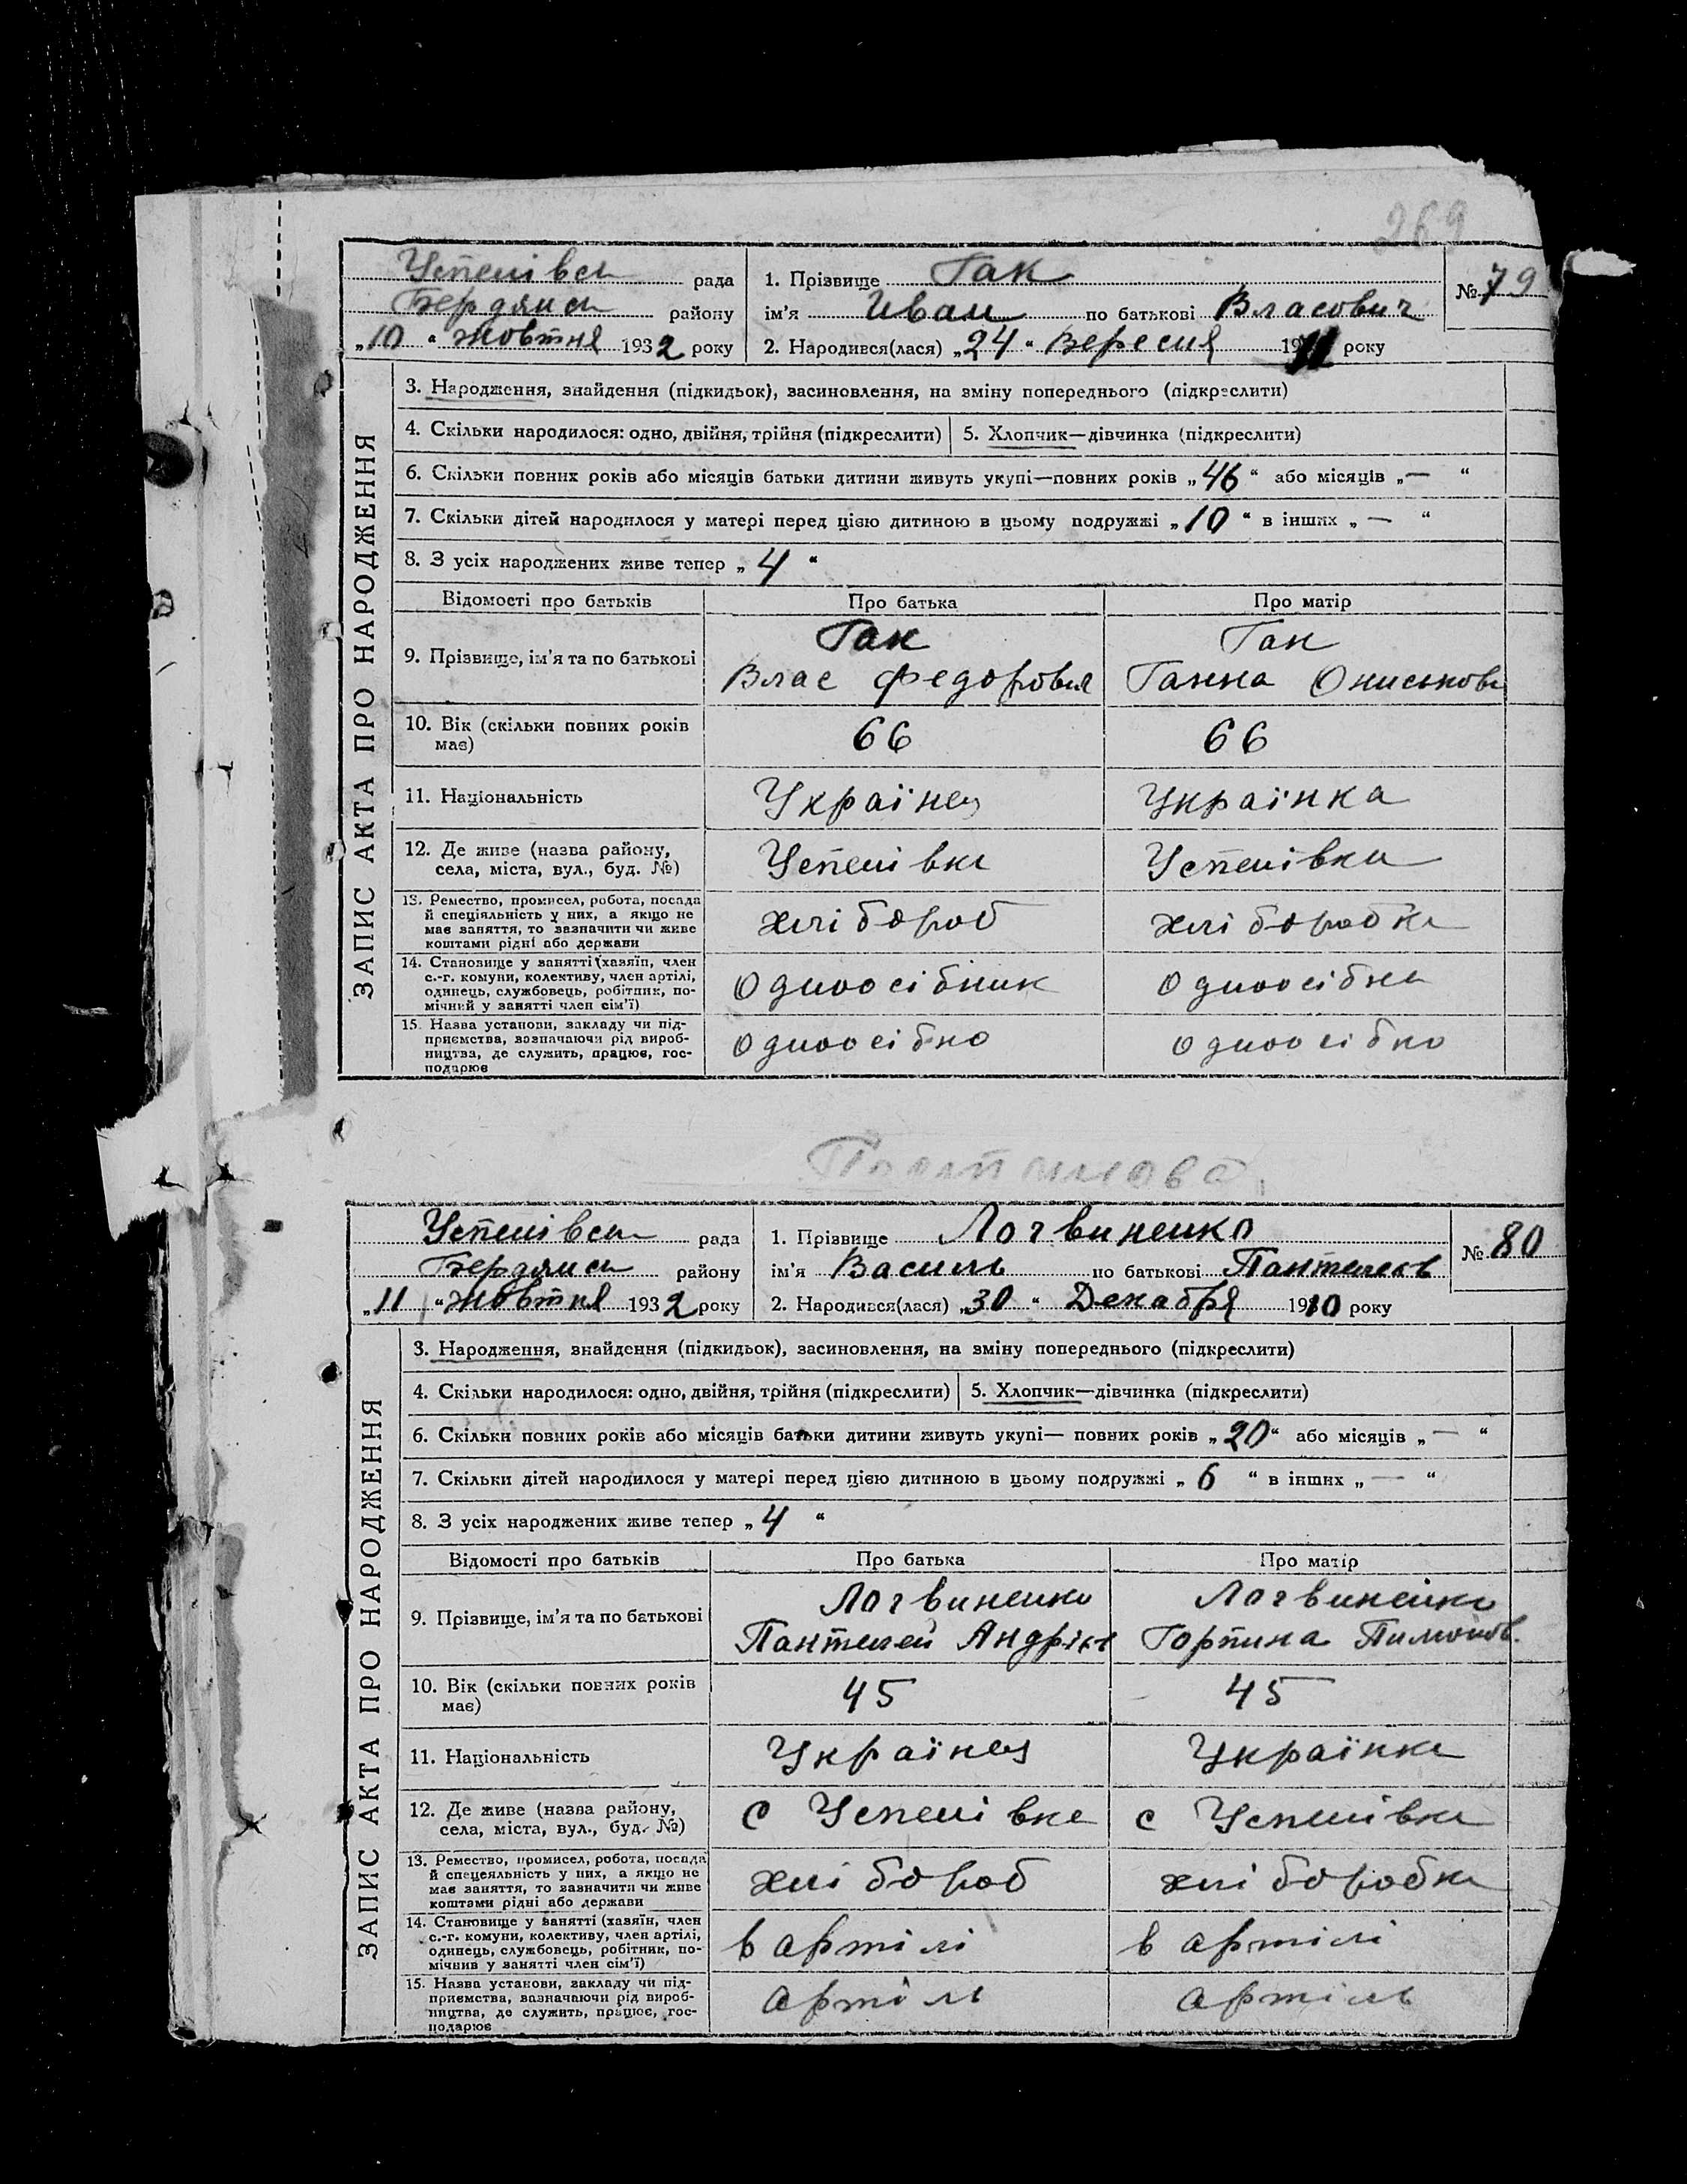 269
Успенівськ рада
Бердянськ району
„10“ жовтня 1932 року
1. Прізвище Гак
ім'я Иван по батькові Власович
2. Народився(лася) „24“ Вересня 1911 року
№ 79
ЗАПИС АКТА ПРО НАРОДЖЕННЯ
3. Народження, знайдення (підкидьок), засиновлення, на зміну попереднього (підкреслити)
4. Скільки народилося: одно, двійня, трійня (підкреслити) 5. Хлопчик—дівчинка (підкреслити)
6. Скільки повних років або місяців батьки дитини живуть укупі—повних років „46“ або місяців „—“
7. Скільки дітей народилося у матері перед цією дитиною в цьому подружжі „10“ в інших „—“
8. З усіх народжених живе тепер „4“
Відомості про батьків Про батька Про матір
9. Прізвище, ім'я та по батькові
Гак Гак
Влас Федорович Ганна Ониськов
10. Вік (скільки повних років
має)
66 66
11. Національність Українец Українка
12. Де живе (назва району,
села, міста, вул., буд. №)
Успенівка Успенівка
13. Ремество, промисел, робота, посада
й спеціяльність у них, а якщо не
має заняття, то зазначити чи живе
коштами рідні або держави
хлібороб хліборобка
14. Становище у занятті (хазяїн, член
с.-г. комуни, колективу, член артілі,
одинець, службовець, робітник, по-
мічний у занятті член сім'ї)
Одноосібник одноосібна
15. Назва установи, закладу чи під-
приємства, зазначаючи рід вироб-
ництва, де служить, працює, гос-
подарює
одноосібно одноосібно
Успенівськ рада
Бердянськ району
„11“ жовтня 1932 року
1. Прізвище Логвиненко
ім'я Василь по батькові Пантелеєв
2. Народився(лася) „30“ Декабря 1910 року
№ 80
ЗАПИС АКТА ПРО НАРОДЖЕННЯ
3. Народження, знайдення (підкидьок), засиновлення, на зміну попереднього (підкреслити)
4. Скільки народилося: одно, двійня, трійня (підкреслити) 5. Хлопчик—дівчинка (підкреслити)
6. Скільки повних років або місяців батьки дитини живуть укупі— повних років „20“ або місяців „—“
7. Скільки дітей народилося у матері перед цією дитиною в цьому подружжі „6“ в інших „—“
8. З усіх народжених живе тепер „4“
Відомості про батьків Про батька Про матір
9. Прізвище, ім'я та по батькові
Логвиненко Логвиненко
Пантелей Андрієв Горпина Пимонов.
10. Вік (скільки повних років
має)
45 45
11. Національність Українец Українка
12. Де живе (назва району,
села, міста, вул., буд. №)
с Успенівка с Успенівка
13. Ремество, промисел, робота, посада
й спецеяльність у них, а якщо не
має заняття, то зазначити чи живе
коштами рідні або держави
хлібороб хліборобка
14. Становище у занятті (хазяїн, член
с.-г. комуни, колективу, член артілі,
одинець, службовець, робітник, по-
мічнив у занятті член сім'ї)
в артілі в артілі
15. Назва установи, закладу чи під-
приємства, вазначаючи рід вироб-
ництва, де служить, працює, гос-
подарює
артіль артіль